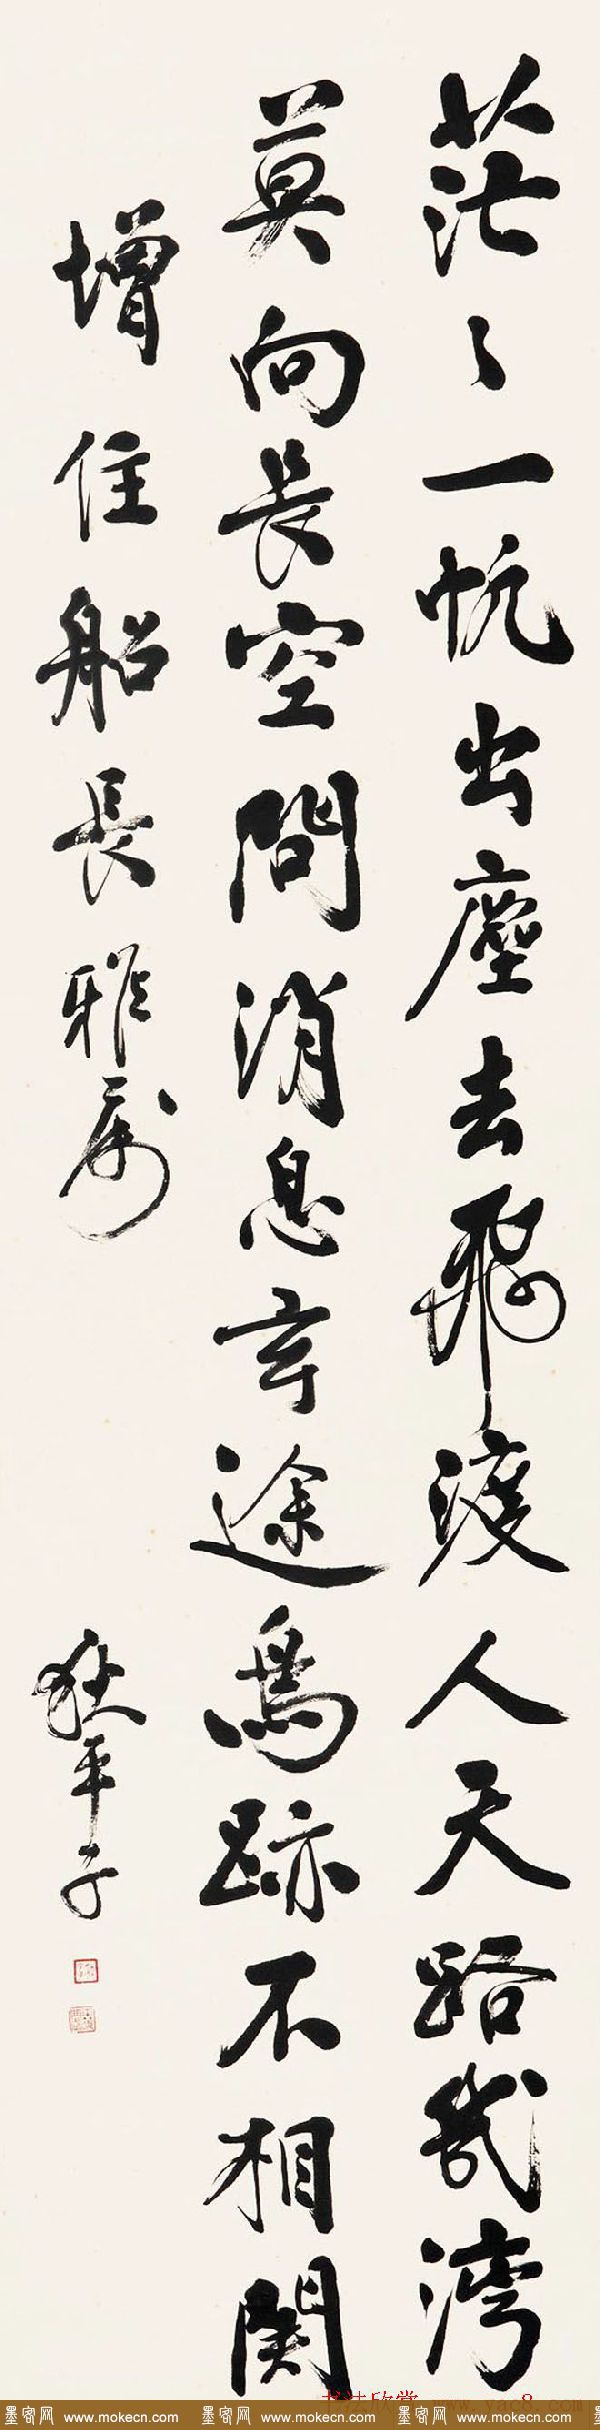 茫々一帆出塵去飛渡人天路幾灣
莫向長空問消息途鳥跡不相關
增住船長雅属
狄平子
书法欣赏 www.yac8.com
墨客网 www.mokecn.com 墨客网 www.mokecn.com 墨客网 www.mokecn.com